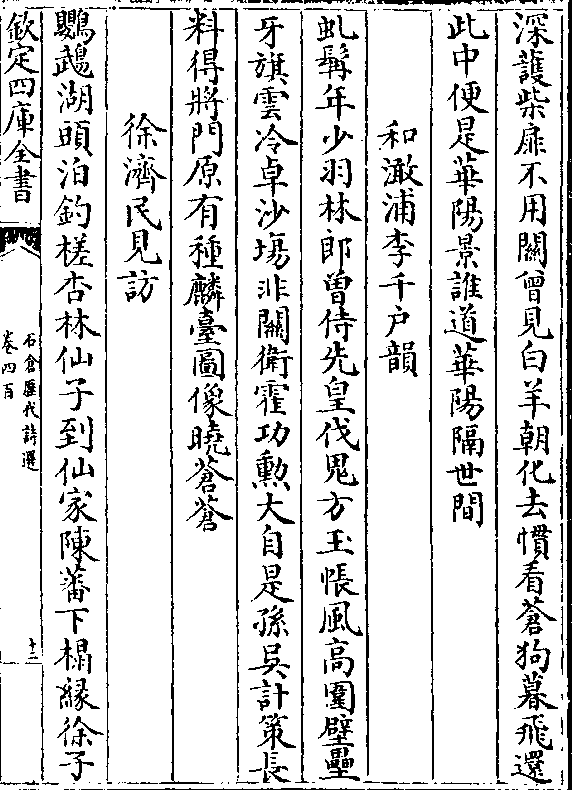 深護柴扉不用關曾見白羊朝化去慣看蒼狗暮飛還
此中便是華陽景誰道華陽隔世間
和澉浦李千户韻
虬髯年少羽林郎曽侍先皇伐鬼方玉帳風高圍壁壘
牙旗雲冷卓沙場非關衛霍功勲大自是孫吳計策長
料得將門原有種麟臺圖像曉蒼蒼
徐濟民見訪
鸚鵡湖頭泊釣槎杏林仙子到仙家陳蕃下榻縁徐子
欽定四庫全書
石倉歷代詩選
卷四百
十二